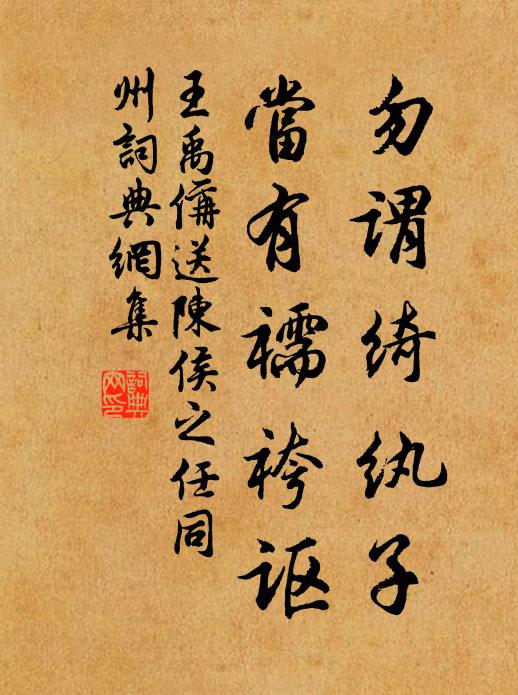 勿谓绮纨子
當有襦袴讴
王禹偁送陳侯之任同
州詞典網集
詞典
网印